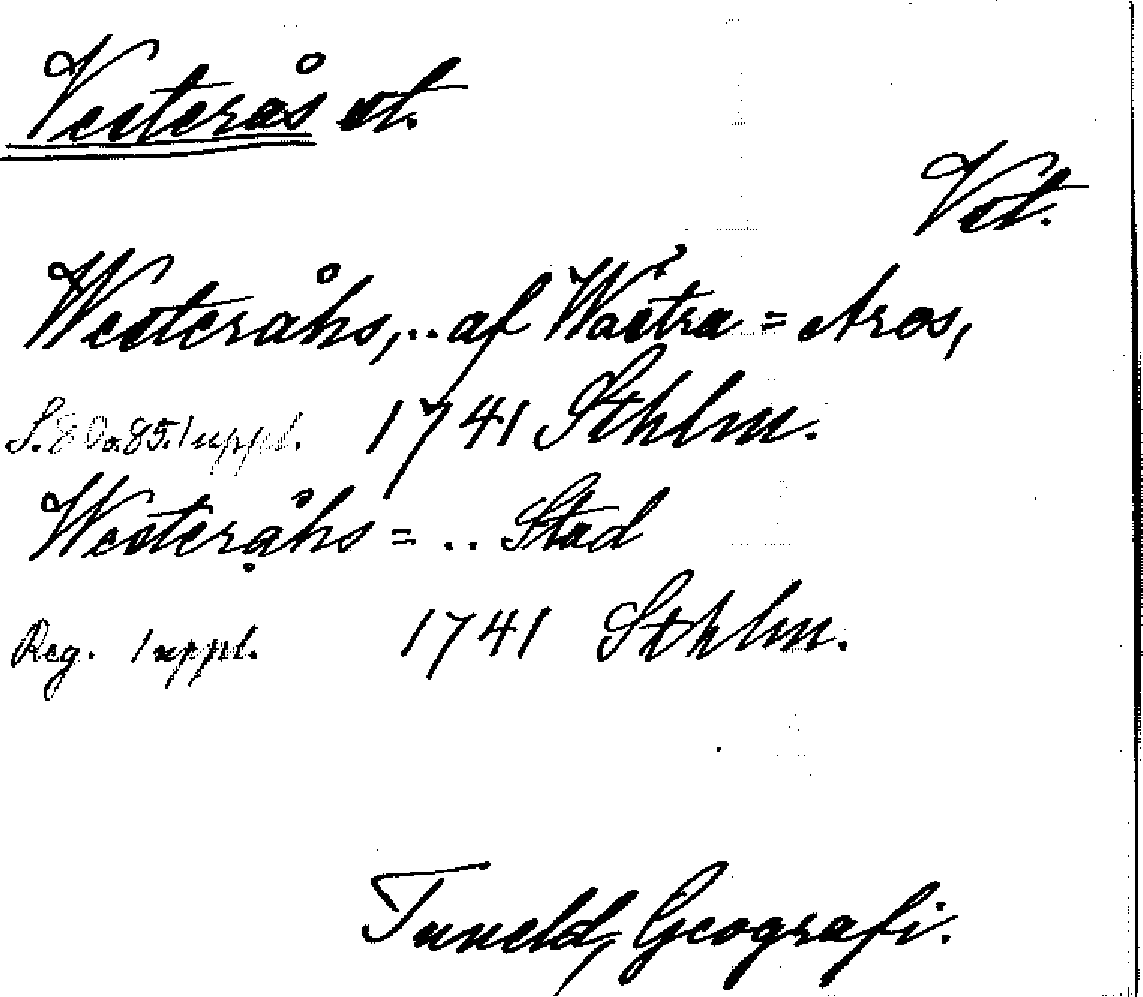 Vesterås st.
Vst.
Westeråhs, .. af Wästra = Aros,
S. 80 o. 85. 1 uppl. 1741 Sthlm.
Westeråhs = .. Stad
Reg. 1 uppl. 1741 Sthlm.
Tuneld, Geografi.